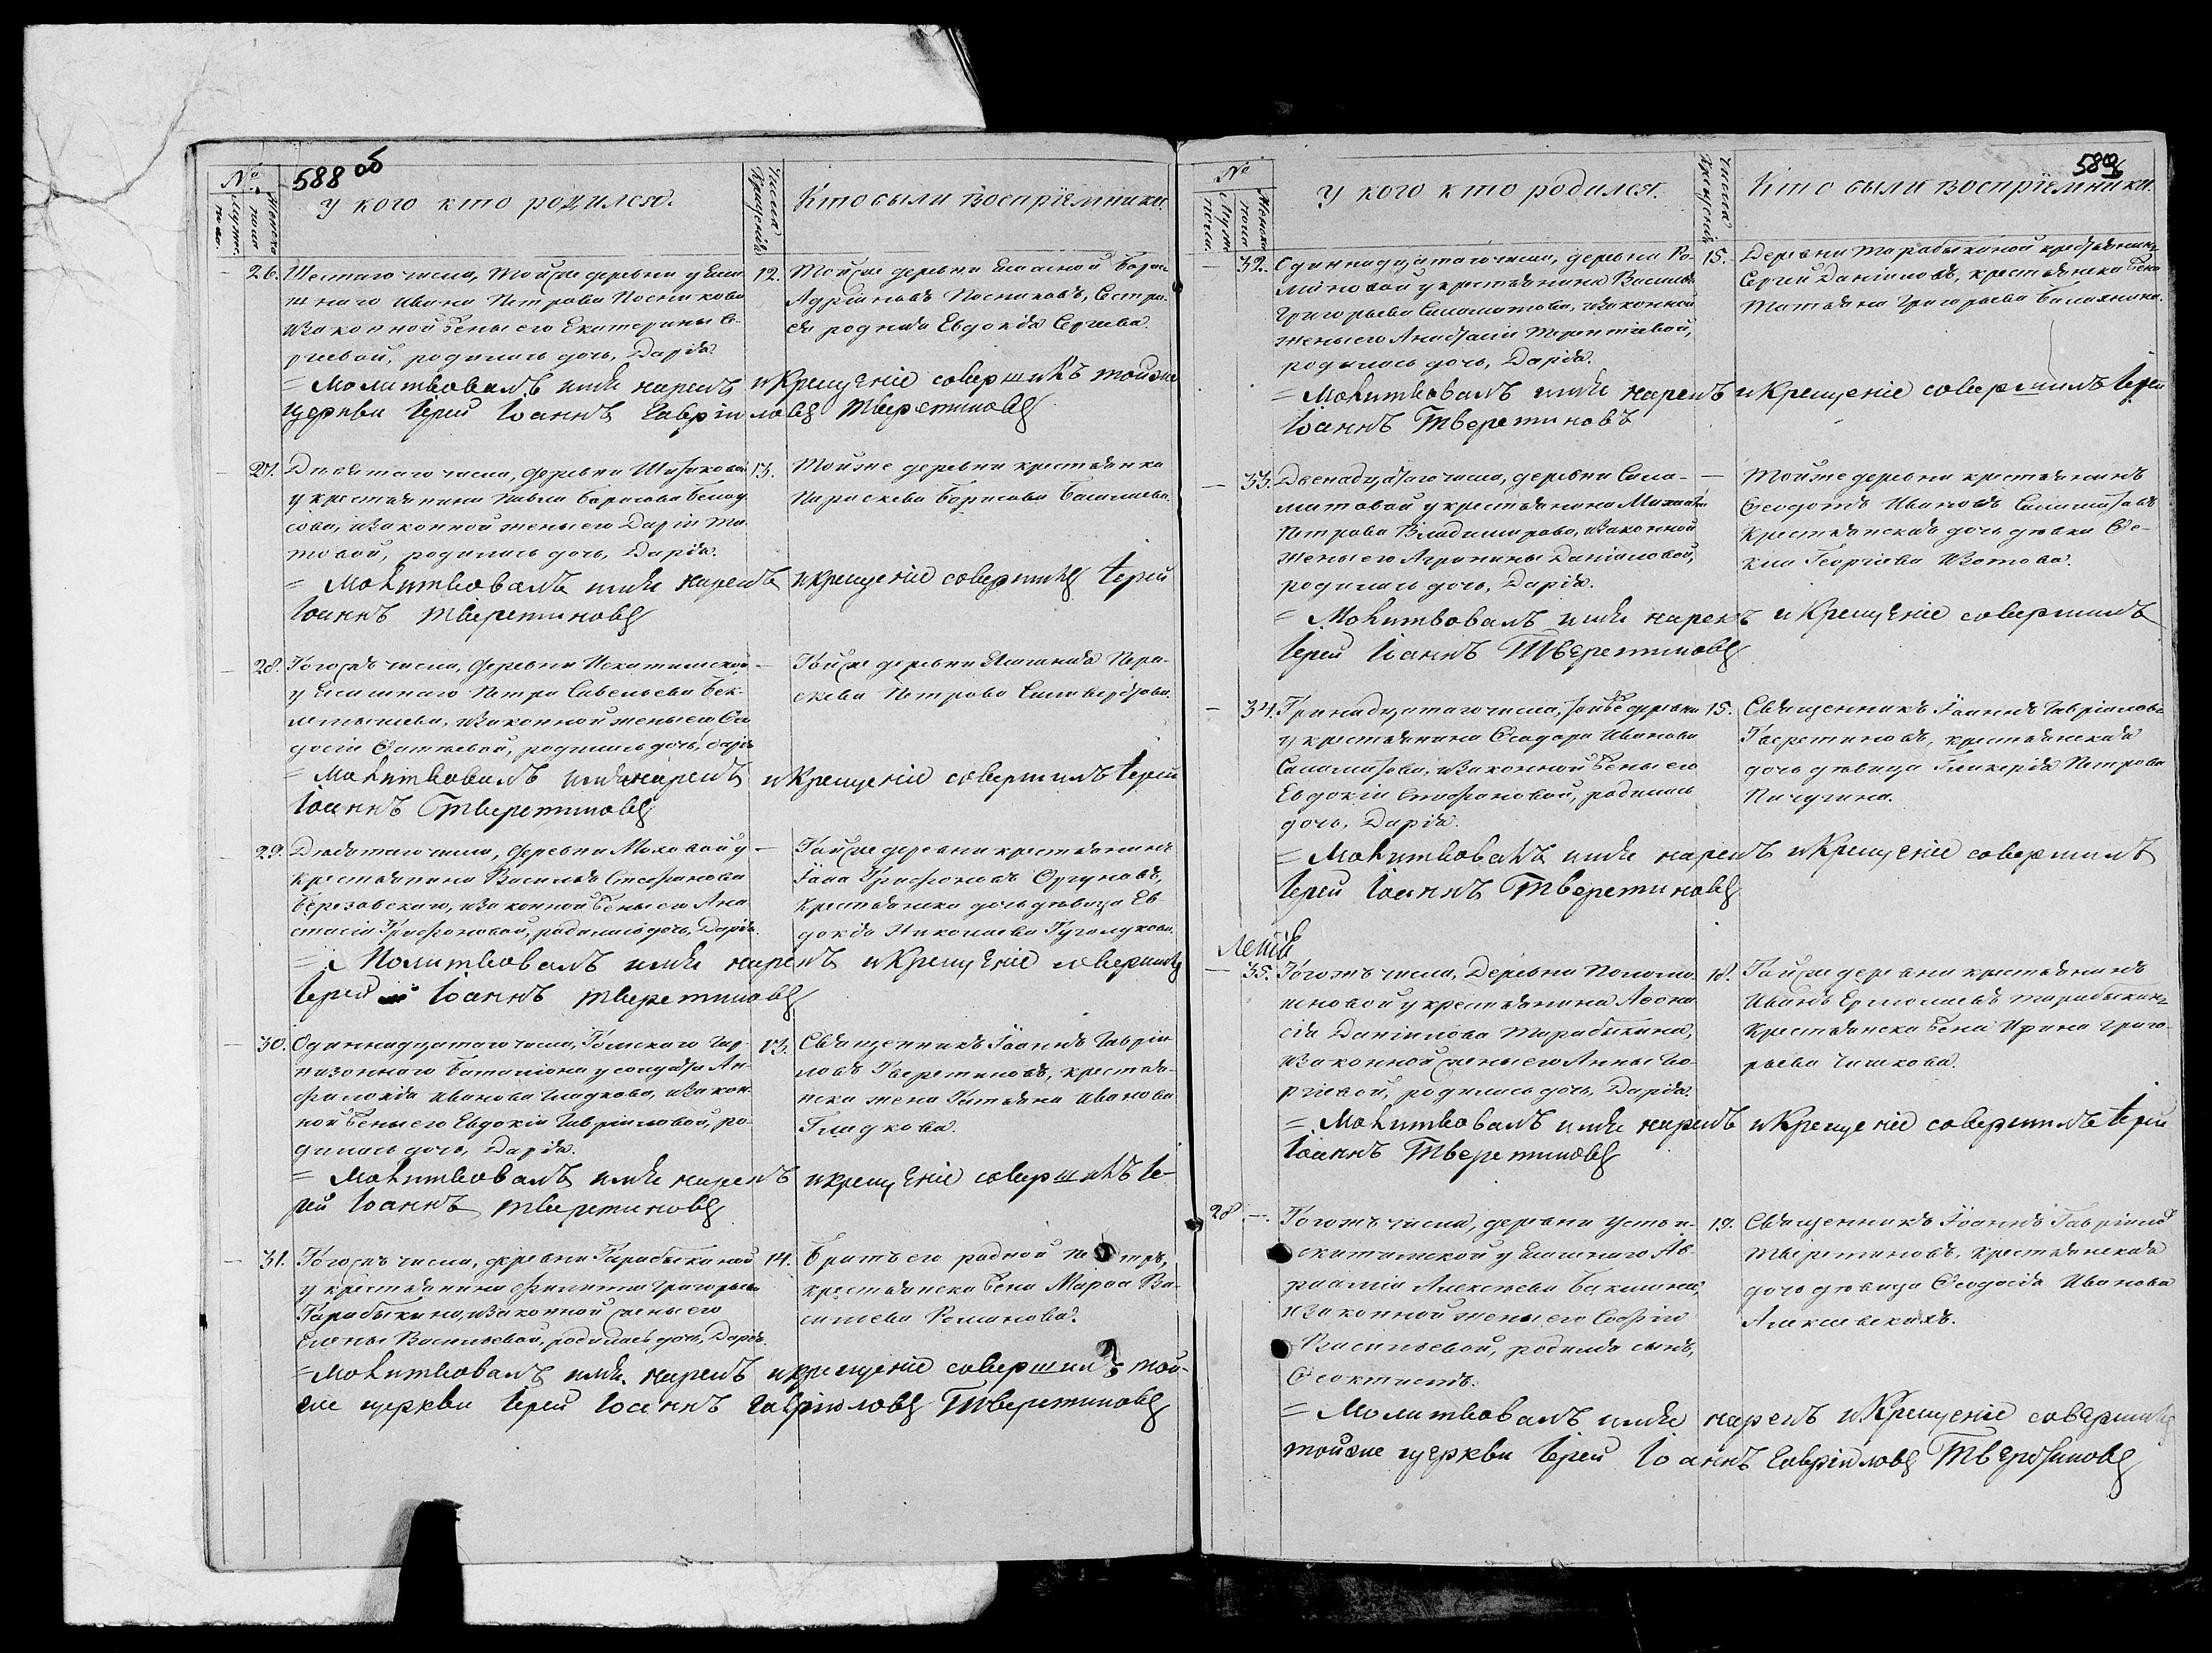 588 об
№
Мужс. пола.
Женска пола
У кого кто родился.
Числа Крещенія
Кто были Воспріемники.
26. Шестаго числа, Той же деревни у Ясашнаго Ивана Петрова Посникова
изаконной жены его Екатерины
родилась дочь, Дарія. 12.
Той же деревни Ясашной
Адріановъ Посниковъ, Сестра
его родная Евдокія Сергеева.
= Молитвовалъ имя нарекъ и Крещеніе совершилъ тойже
церкви Іерей Іоаннъ Гавріиловъ Тверетиновъ
27. Десятаго числа, деревни
у крестьянина Павла Борисова
изаконной жены его Даріи
родилась дочь, Дарія. 13.
Тойже деревни крестьянка
Параскева Борисова
= Молитвовалъ имя нарекъ и крещеніе совершилъ Іерей
Іоаннъ Тверетиновъ
28. Тогожъ числа, деревни Искитимской
у Ясашнаго Петра Савельева
изаконной жены его
родилась дочь, Дарія —
Тойже деревни Ясашная Параскева Петрова
= Молитвовалъ имя нарекъ и Крещеніе совершилъ Іерей
Іоаннъ Тверетиновъ
29. Девятаго числа, деревни Моховой у
крестьянина Василья Стефанова
Березовскаго, изаконной жены его Анастасіи Трифоновой, родилась дочь, Дарія. —
Тойже деревни крестьянинъ
Трифоновъ
крестьянска дочь девица Евдокія Николаева
= Молитвовалъ имя нарекъ и Крещеніе совершилъ
Іерей Іоаннъ Тверетиновъ
30. Одиннадцатаго числа, Томскаго Гарнизоннаго Баталіона у солдата
Иванова Гладкова, изаконной жены его Евдокіи Гавріиловой, родилась дочь, Дарія. 13.
Священникъ Іоаннъ Гавріиловъ Тверетиновъ, крестьянска жена Татьяна Иванова
Гладкова.
= Молитвовалъ имя нарекъ и крещеніе совершилъ Іерей Іоаннъ Тверетиновъ
31. Тогожъ числа, деревни Тарабыкиной
у крестьянина Филиппа Григорьева
Тарабыкина, изаконной жены его
Елены Васильевой, родилась дочь, Дарія. 14.
Братъ его родной Петръ,
крестьянска жена Марфа Васильева Романова.
= Молитвовалъ имя нарекъ и крещеніе совершилъ тойже церкви Іерей Іоаннъ Гавріиловъ Тверетиновъ
589
№
Мужс. пола.
Женска пола
У кого кто родился.
Числа Крещенія
Кто были воспріемники.
32. Одиннадцатаго числа, деревни
у крестьянина Василья
Григорьева Саламатова, изаконной
жены его Анастасіи Терентіевой,
родилась дочь, Дарія. 15.
Деревни Тарабыкиной крестьянинъ
Сергій Даниловъ, крестьянска жена
Татьяна Григорьева
= Молитвовалъ имя нарекъ и Крещеніе совершилъ Іерей
Іоаннъ Тверетиновъ
33. Двенадцатаго числа, деревни Саламатовой у крестьянина Михаила
Петрова Владимирова, изаконной
жены его Агрипины Даниловой,
родилась дочь, Дарія. —
Тойже деревни крестьянинъ
Феодотъ Ивановъ Саламатовъ
крестьянская дочь девка
Георгіева Изотова.
= Молитвовалъ имя нарекъ и Крещеніе совершилъ
Іерей Іоаннъ Тверетиновъ
34. Тринадцатаго числа, тойже деревни
у крестьянина Феодора Иванова
Саламатова, изаконной жены его
Евдокіи Стефановой, родилась
дочь, Дарія. 15.
Священникъ Іоаннъ Гавріиловъ
Тверетиновъ, крестьянская
дочь девица Гликерія Петрова
Пичугина.
= Молитвовалъ имя нарекъ и Крещеніе совершилъ
Іерей Іоаннъ Тверетиновъ
35. Тогожъ числа, Деревни
у крестьянина Афонасія Данилова Тарабыкина,
изаконной жены его Анны
родилась дочь, Дарія. 18.
Тойже деревни крестьянинъ
Иванъ Ермолаевъ Тарабыкинъ
крестьянска жена Ирина Григорьева Чишкова.
= Молитвовалъ имя нарекъ и Крещеніе совершилъ Іерей
Іоаннъ Тверетиновъ
28 —. Тогожъ числа, деревни Усть искитимской у Ясашнаго Авраамія Алексеева
изаконной жены его Софіи
Васильевой, родился сынъ,
Феоктистъ. 19.
Священникъ Іоаннъ Гавріиловъ
Тверетиновъ, крестьянская
дочь девица Феодосія Иванова
= Молитвовалъ имя нарекъ и Крещеніе совершилъ
тойже церкви Іерей Іоаннъ Гавріиловъ Тверетиновъ